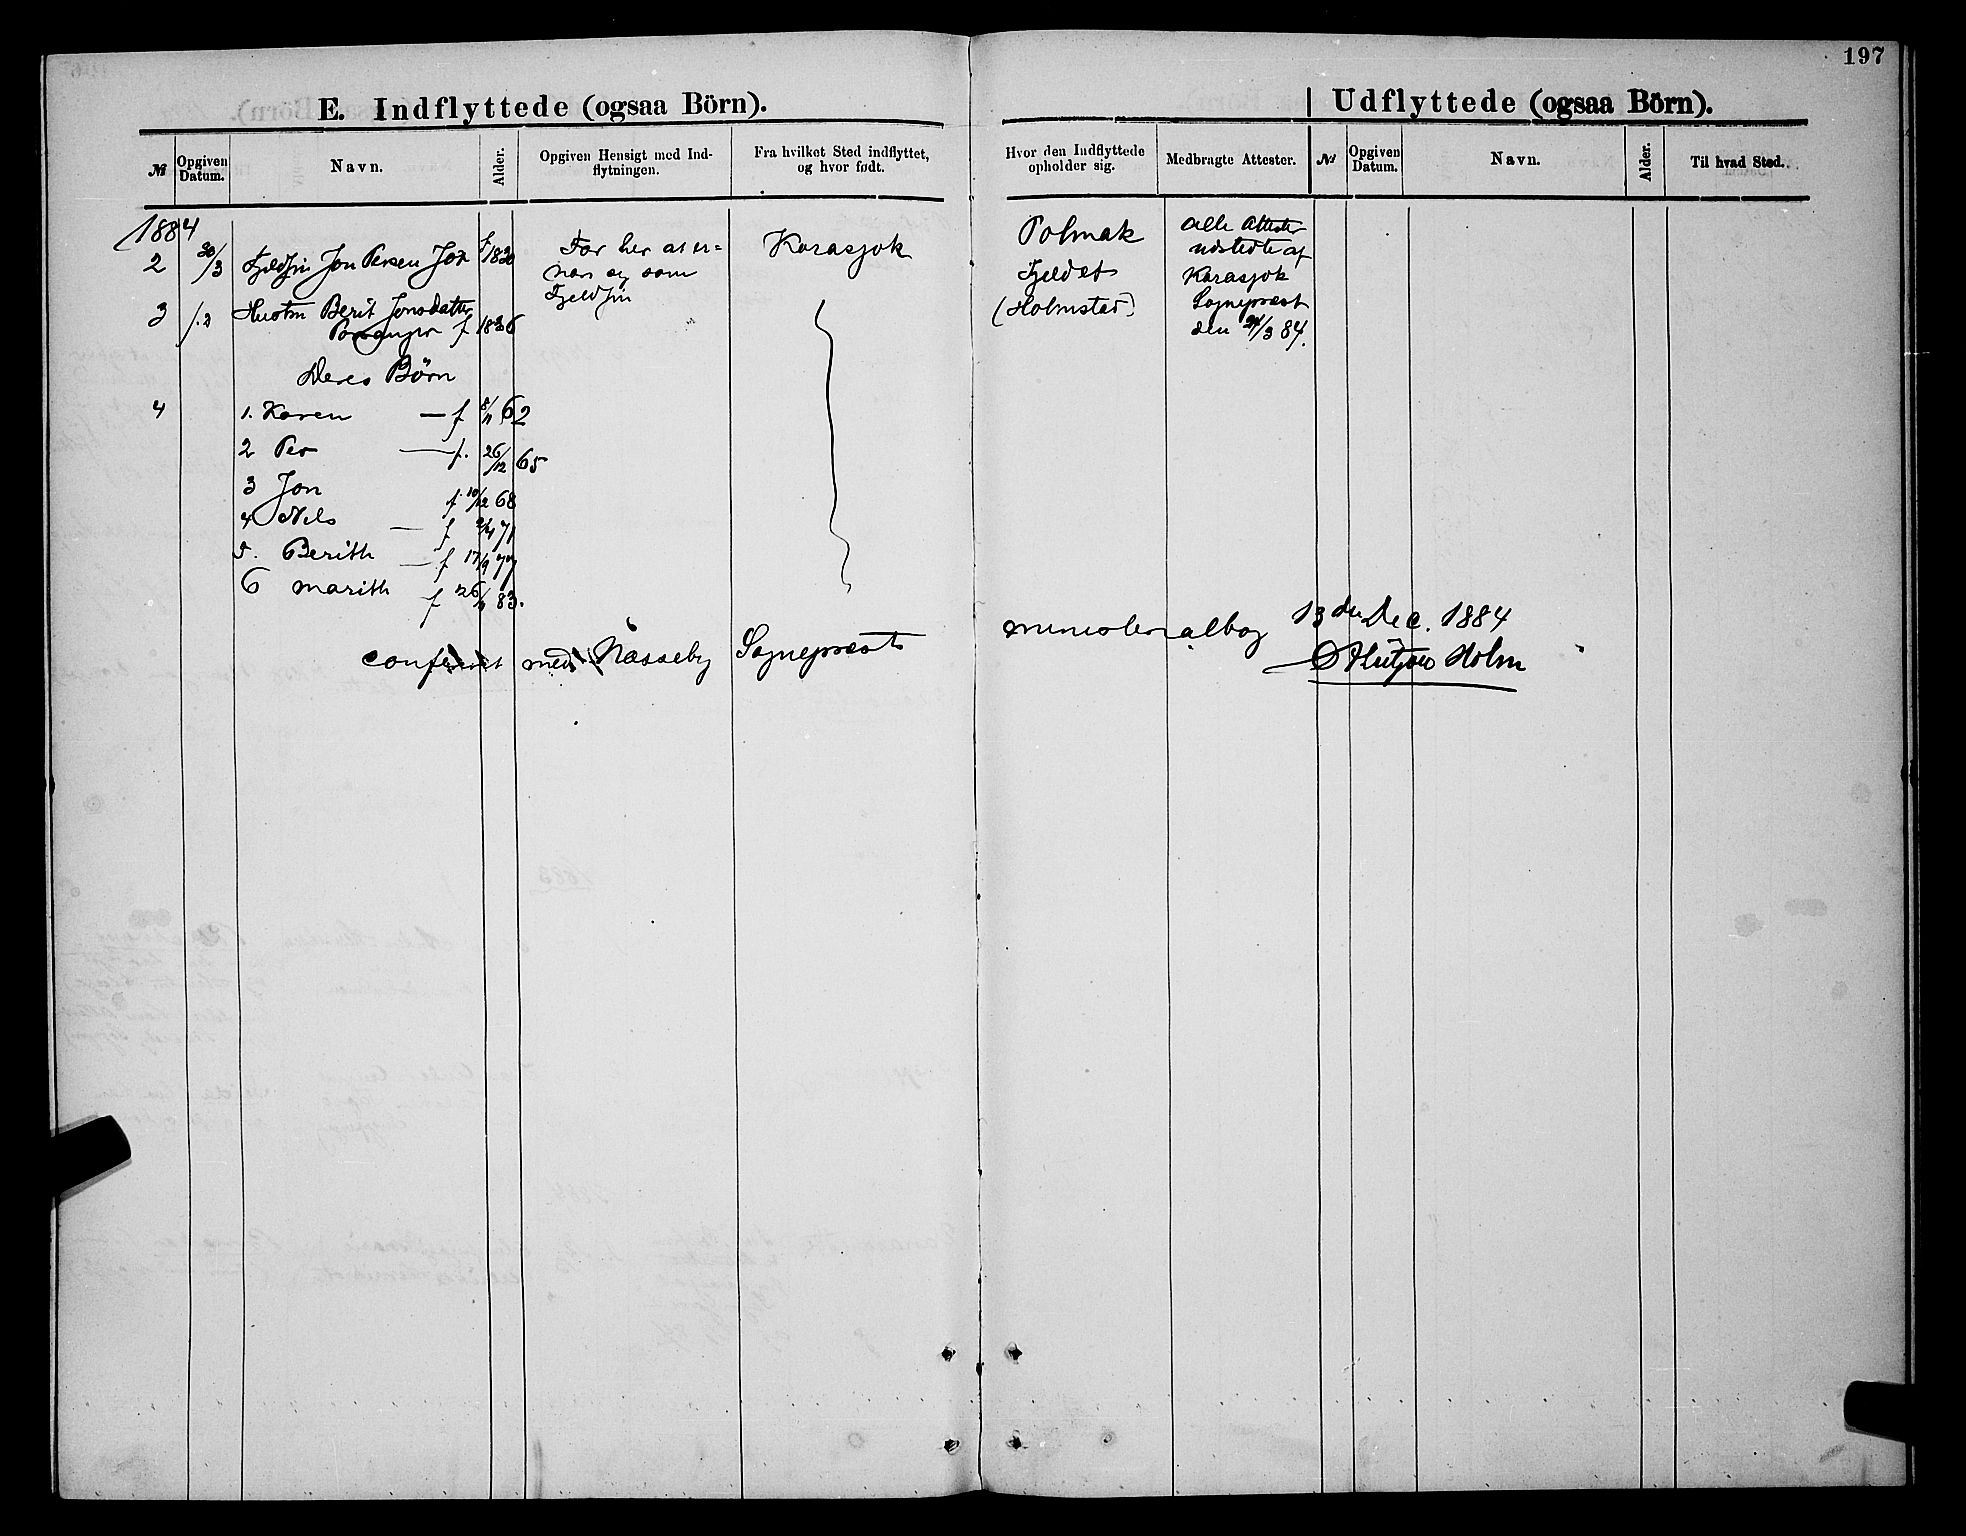 197
E. Indflyttede (ogsaa Börn).
Udflyttede (ogsaa Börn).
№
Opgiven Datum.
Navn.
Alder.
Opgiven Hensigt med Ind-
flytningen.
Fra hvilket Sted indflyttet,
og hvor født.
Hvor den Indflyttede
opholder sig.
Medbragte Attester.
№
Opgiven Datum.
Navn.
Alder.
Til hvad Sted.
1884
2 30/3 Fjeldfin Jon Persen f 1830
For her at er-
nære sig som
Fjeldfin
Karasjok
Polmak
Fjeldet
(Holmstad)
Alle Attester
udstedte af
Karasjok
Sogneprest
den /3 84.
3 Hustru Berit Jonsdatter
f 1836
Deres Börn
4 1. Karen — f 62
2 Per — f. 26/12 65
3 Jon f 10/12 68
4 Nils — f 71
5. Berith — f 17/9 77
6 Marith f 26/ 83.
conferert med Næsseby Sogneprests ministerialbog 13de Dec. 1884
Holm